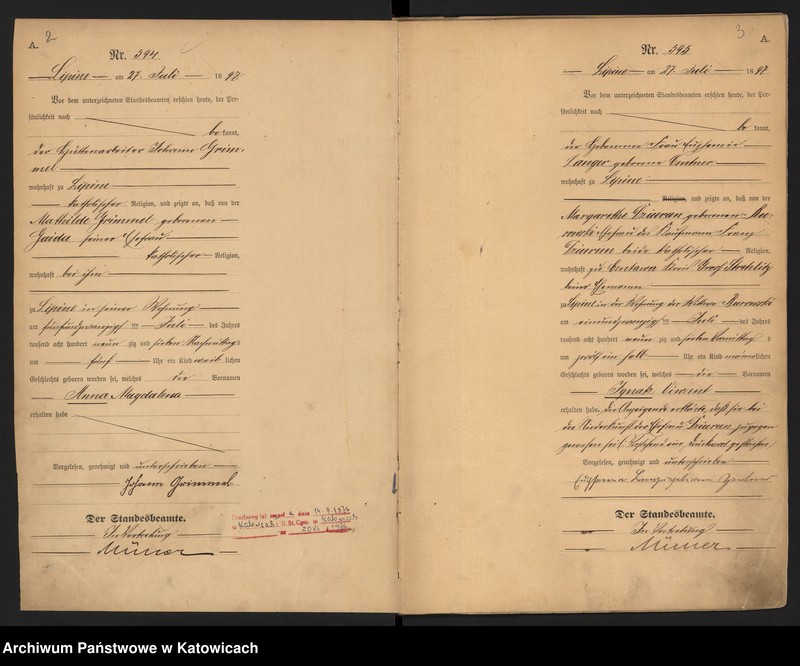 2
A.
Nr. 394
Lipine am 27. Juli 1897
Vor dem unterzeichneten Standesbeamten erschien heute, der Per-
sönlichkeit nach
be kannt,
der Hüttenarbeiter Johann Grim-
mel
wohnhaft zu Lipine
katholischer Religion, und zeigte an, daß von der
Mathilde Grimmel geborenen
Gaida seiner Ehefrau
katholischer Religion,
wohnhaft bei ihm
zu Lipine in seiner Wohnung
am fünfundzwanzigsten Juli des Jahres
tausend acht hundert neun zig und sieben Nachmittags
um fünf Uhr ein Kind weib lichen
Geschlechts geboren worden sei, welches die Vornamen
Anna Magdalena
erhalten habe
Vorgelesen, genehmigt und unterschrieben
Johann Grimmel
Der Standesbeamte.
In Vertretung
Müller
14.9.1976
w Katowicach U. St. Cyw. w
3
A.
Nr. 395
Lipine am 27. Juli 1897
Vor dem unterzeichneten Standesbeamten erschien heute, der Per-
sönlichkeit nach
be kannt,
die Hebamme Frau Euphemie
Langer geborene
wohnhaft zu Lipine
Religion, und zeigte an, daß von der
Margarethe Dziuran geborenen Ku-
rowski Ehefrau des Kaufmann Franz
Dziuran beide katholischer Religion,
wohnhaft zu Kreis Groß Strehlitz
ihrem Ehemann
zu Lipine in der Wohnung der Witwe Kurowski
am einundzwanzigsten Juli des Jahres
tausend acht hundert neun zig und sieben Vormittags
um zwölf ein halb Uhr ein Kind männlichen
Geschlechts geboren worden sei, welches die Vornamen
Ignatz Vincent
erhalten habe. Die Anzeigende erklärte, daß sie bei
der Niederkunft der Ehefrau Dziuran zugegen
gewesen sei.
Vorgelesen, genehmigt und unterschrieben
Der Standesbeamte.
In Vertretung
Müller
Archiwum Państwowe w Katowicach